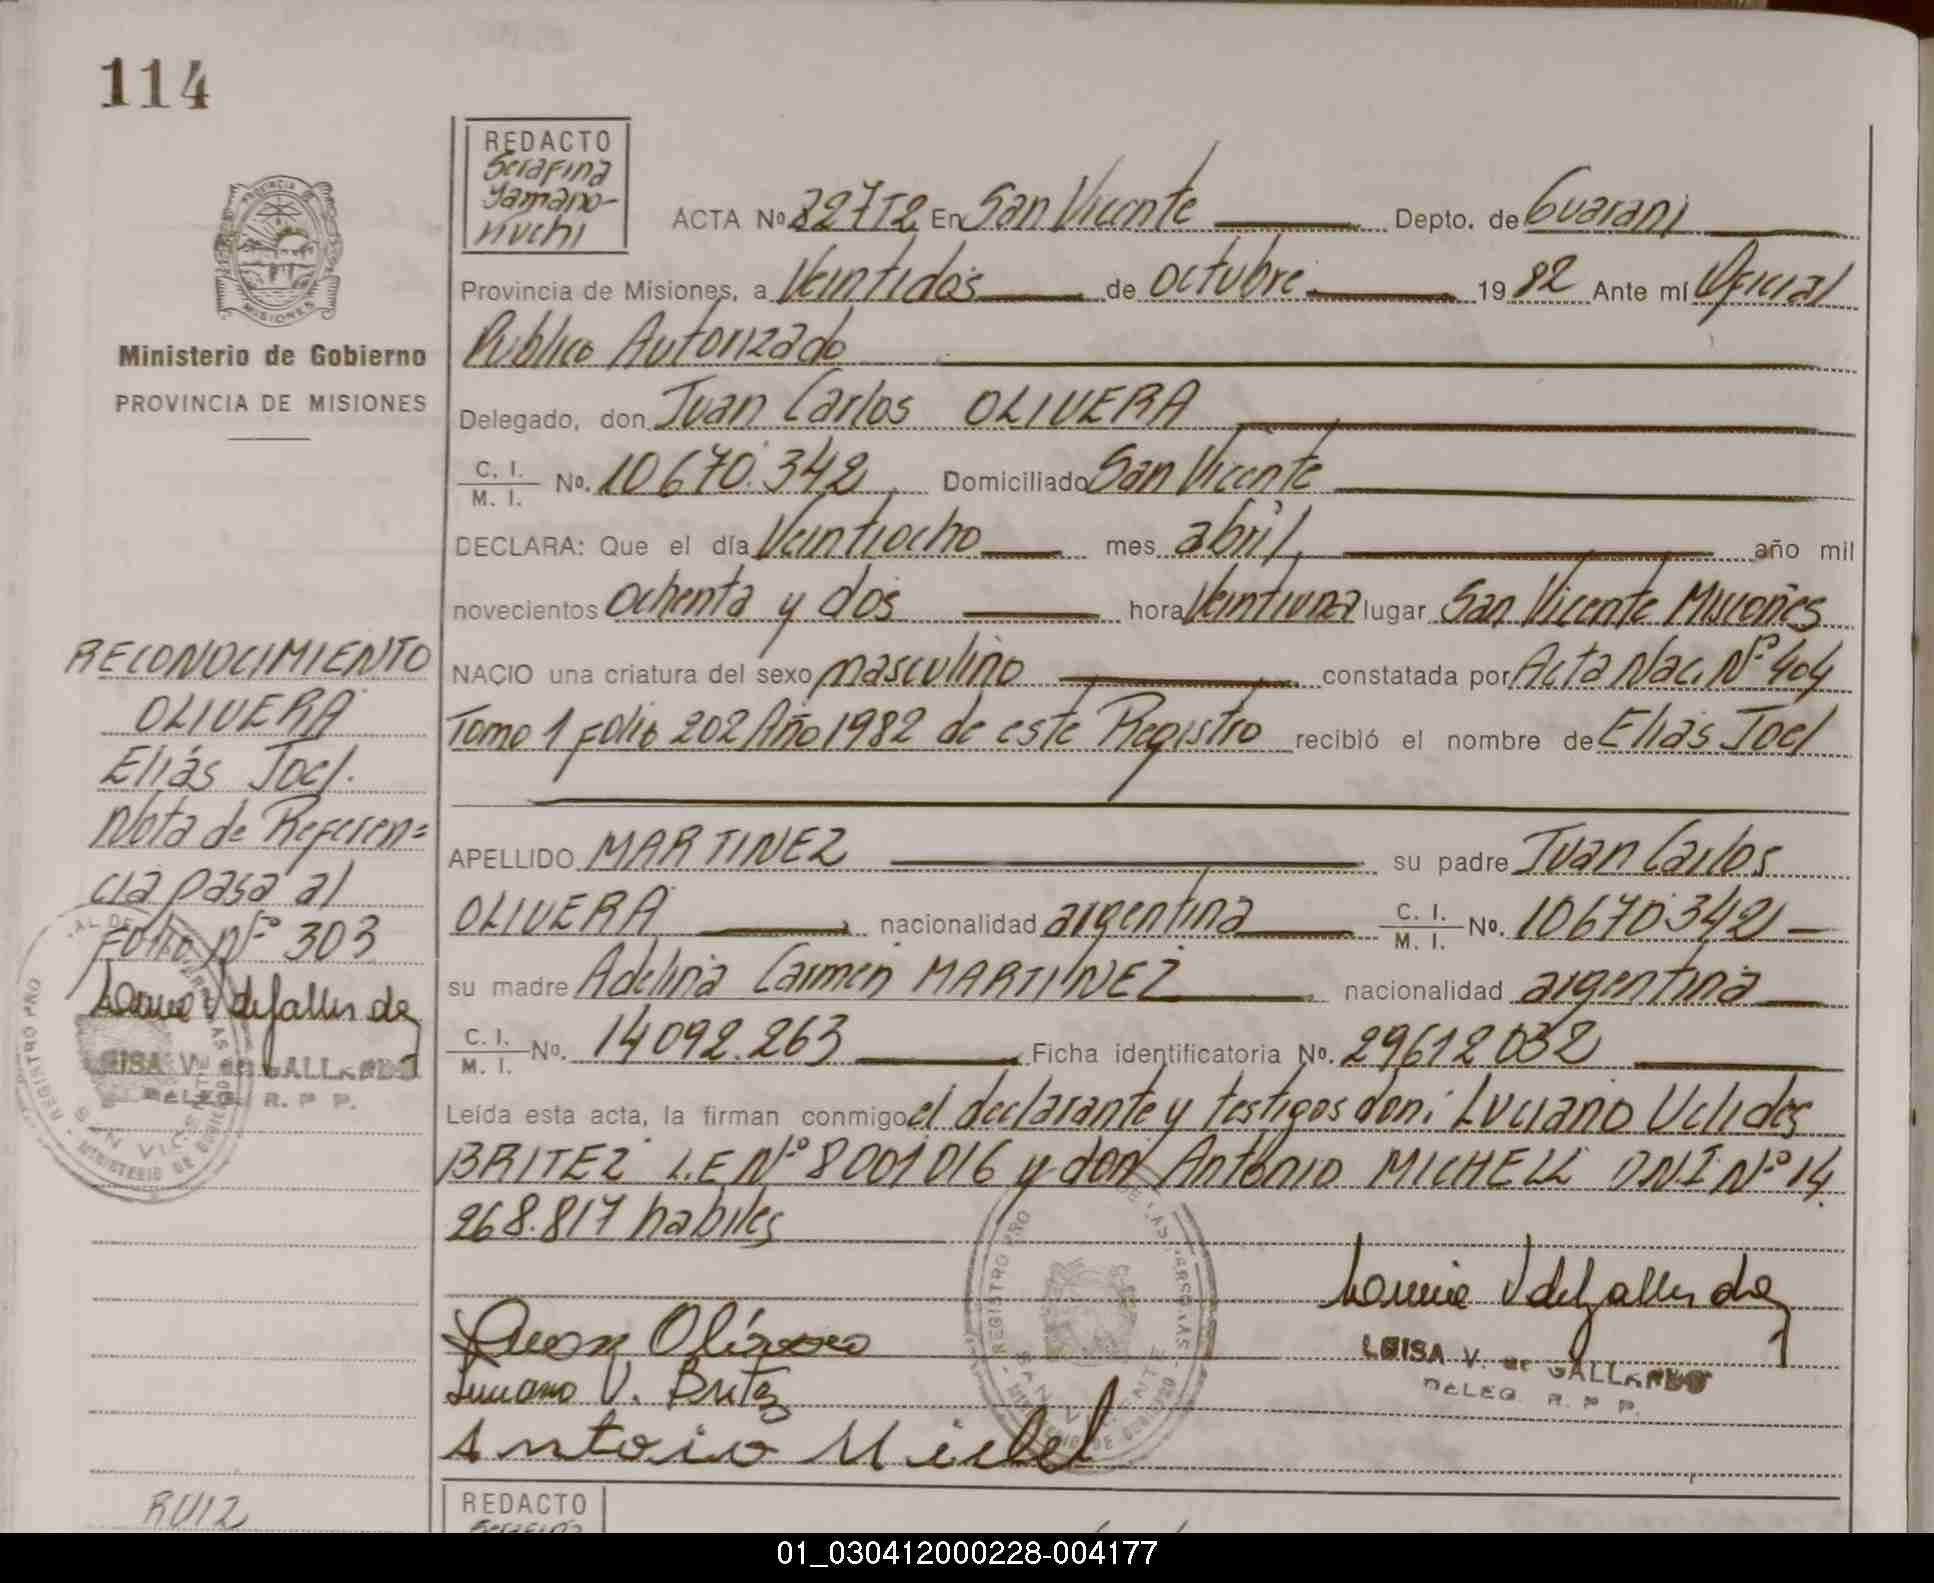 114
REDACTO
Serafina
Yamano-
Ministerio de Gobierno
PROVINCIA DE MISIONES
ACTA No 227T2 En San Vicente Depto. de Guaraní
Provincia de Misiones, a Veintidos de octubre 1982 Ante mí Oficial
Publico Autorizado
Delegado, don Juan Carlos OLIVERA
C. I.
M. I. No. 10670.342 Domiciliado San Vicente
DECLARA: Que el día Veintiocho mes abril año mil
novecientos ochenta y dos hora Veintiuna lugar San Vicente Misiones
NACIO una criatura del sexo masculino constatada por Acta Nac. Nº 404
Tomo 1 folio 202 Año 1982 de este Registro recibió el nombre de Elías Joel
APELLIDO MARTINEZ su padre Juan Carlos
OLIVERA nacionalidad argentina C. I.
M. I. No. 10670342
su madre Adelina Carmen MARTINEZ nacionalidad argentina
C. I.
M. I. No. 14092.263 Ficha identificatoria No. 29612032
Leída esta acta, la firman conmigo el declarante y testigos don: Luciano Uclides
BRITEZ L.E Nº 8001016 y don Antonio MICHELL DNI Nº 14.
268.817 habiles
RECONOCIMIENTO
OLIVERA
Elías Joel.
Nota de Referen=
cia pasa al
Folio Nº 303
LUISA V. de GALLARDO
DELEG. R. P P.
REGISTRO PRO
DE LAS PERSONAS
SAN VICENTE
MINISTERIO DE GOBIERNO
Juan Olivera
Luciano V. Britez
Antoio Michel
LUISA V. de GALLARDO
DELEG. R. P P.
REGISTRO PRO
DE LAS PERSONAS
SAN VICENTE
MINISTERIO DE GOBIERNO
RUIZ
REDACTO
Serafina
01_030412000228-004177